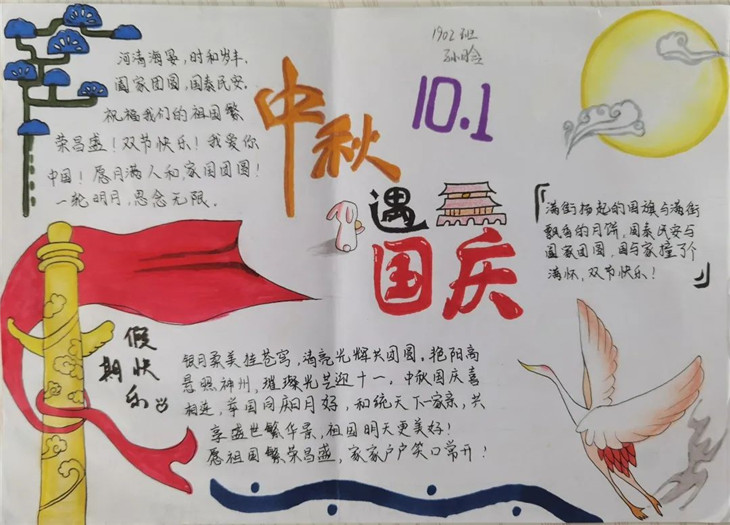 河清海晏，时和岁丰．
阖家团圆，国泰民安．
祝福我们的祖国繁
荣昌盛！双节快乐！我爱你
中国！愿月满人和家国团圆！
一轮明月，思念无限．
中秋
遇
国庆
1902班
10.1
满街扬起的国旗与满街
飘香的月饼，国泰民安与
阖家团圆，国与家撞了个
满怀，双节快乐！
假期快乐
银月柔美挂苍穹，清亮光辉共团圆．艳阳高
悬照神州，璀璨光芒迎十一．中秋国庆喜
相连，举国同庆日月好，和统天下一家亲，共
享盛世繁华景，祖国明天更美好！
愿祖国繁荣昌盛，家家户户笑口常开！